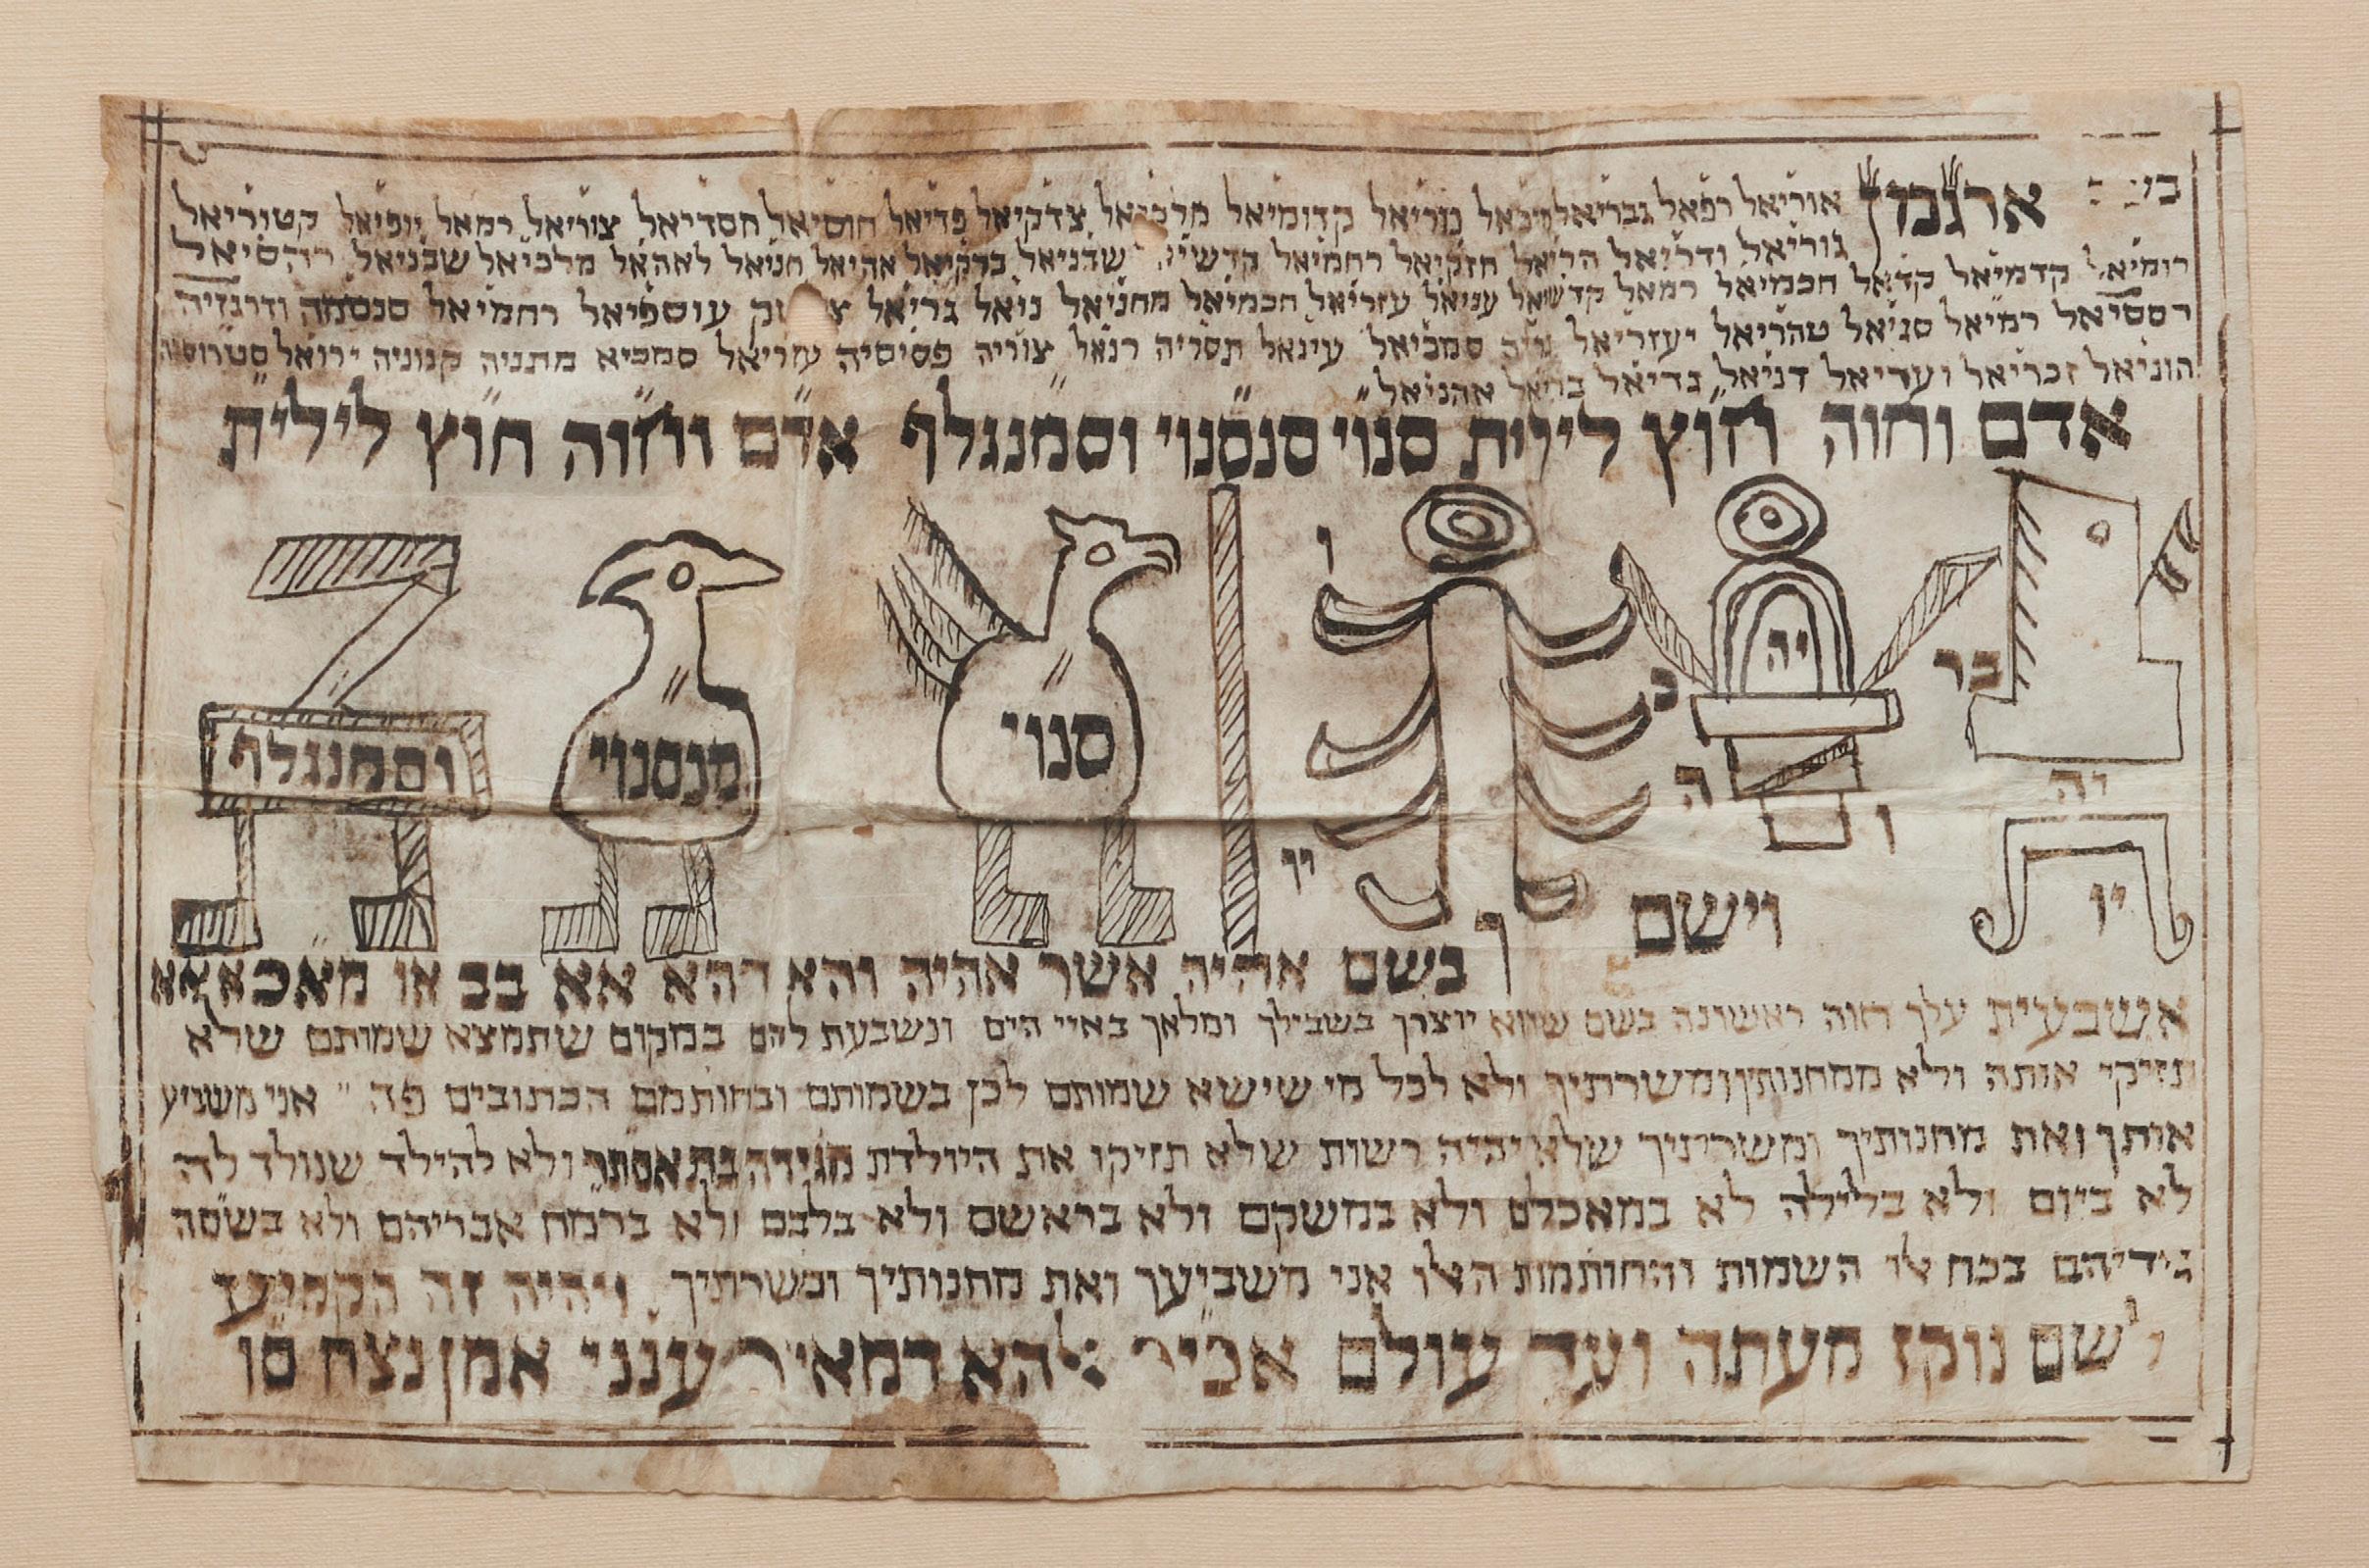 ארגמן
אוריאל רפאל גבריאל מיכאל נוריאל קדומיאל מלכיאל צדקיאל פדיאל חוסיאל חסדיאל צוריאל רמאל יופיאל קטוריאל
גוריאל ודריאל הריאל חזקיאל רחמיאל שדניאל ברקיאל אהיאל חניאל לאהאל מלכיאל שבניאל
רומיאל קדמיאל קדאל חכמיאל רמאל קדשיאל עניאל עזריאל חכמיאל מחניאל נואל גריאל עוספיאל רחמיאל סנסמה ודרגזיה
רססיאל רמיאל סניאל טהריאל יעזריאל סמכיאל עינאל תסריה רנאל צוריה פסיסיה עזריאל סמכיא מתניה קנוניה ירואל
הוניאל זכריאל ועדיאל דניאל גדיאל בריאל אהניאל
אדם וחוה חוץ לילית סנוי סנסנוי וסמנגלף אדם וחוה חוץ לילית
יה
בר
יה
יו
כ
ה
ו
ו
יו
ך
סנוי
מנסנוי
וסמנגלף
וישם
בשם אהיה אשר אהיה והא דהא אא בב או מאכאאא
אשבעית עלך חוה ראשונה בשם שהוא יוצרך בשבילך ומלאך באיי הים ונשבעת להם במקום שתמצא שמותם שלא
תזיקי אותה ולא ממחנותיך ומשרתיך ולא לכל מי שישא שמותם לכן בשמותם ובחותמם הכתובים פה אני משביע
אותך ואת מחנותיך ומשרתיך שלא יהיה רשות שלא תזיקו את היולדת מגידה בת אסתר ולא להילד שנולד לה
לא ביום ולא בלילה לא במאכלם ולא במשקם ולא בראשם ולא בלבם ולא ברמח אבריהם ולא בשסה
גידיהם בכח אלו השמות והחותמות האלו אני משביעך ואת מחנותיך ומשרתיך ויהיה זה הקמיע
לשם נוקז מעתה ועד עולם אכיר להא דמאיר ענני אמן נצח סו